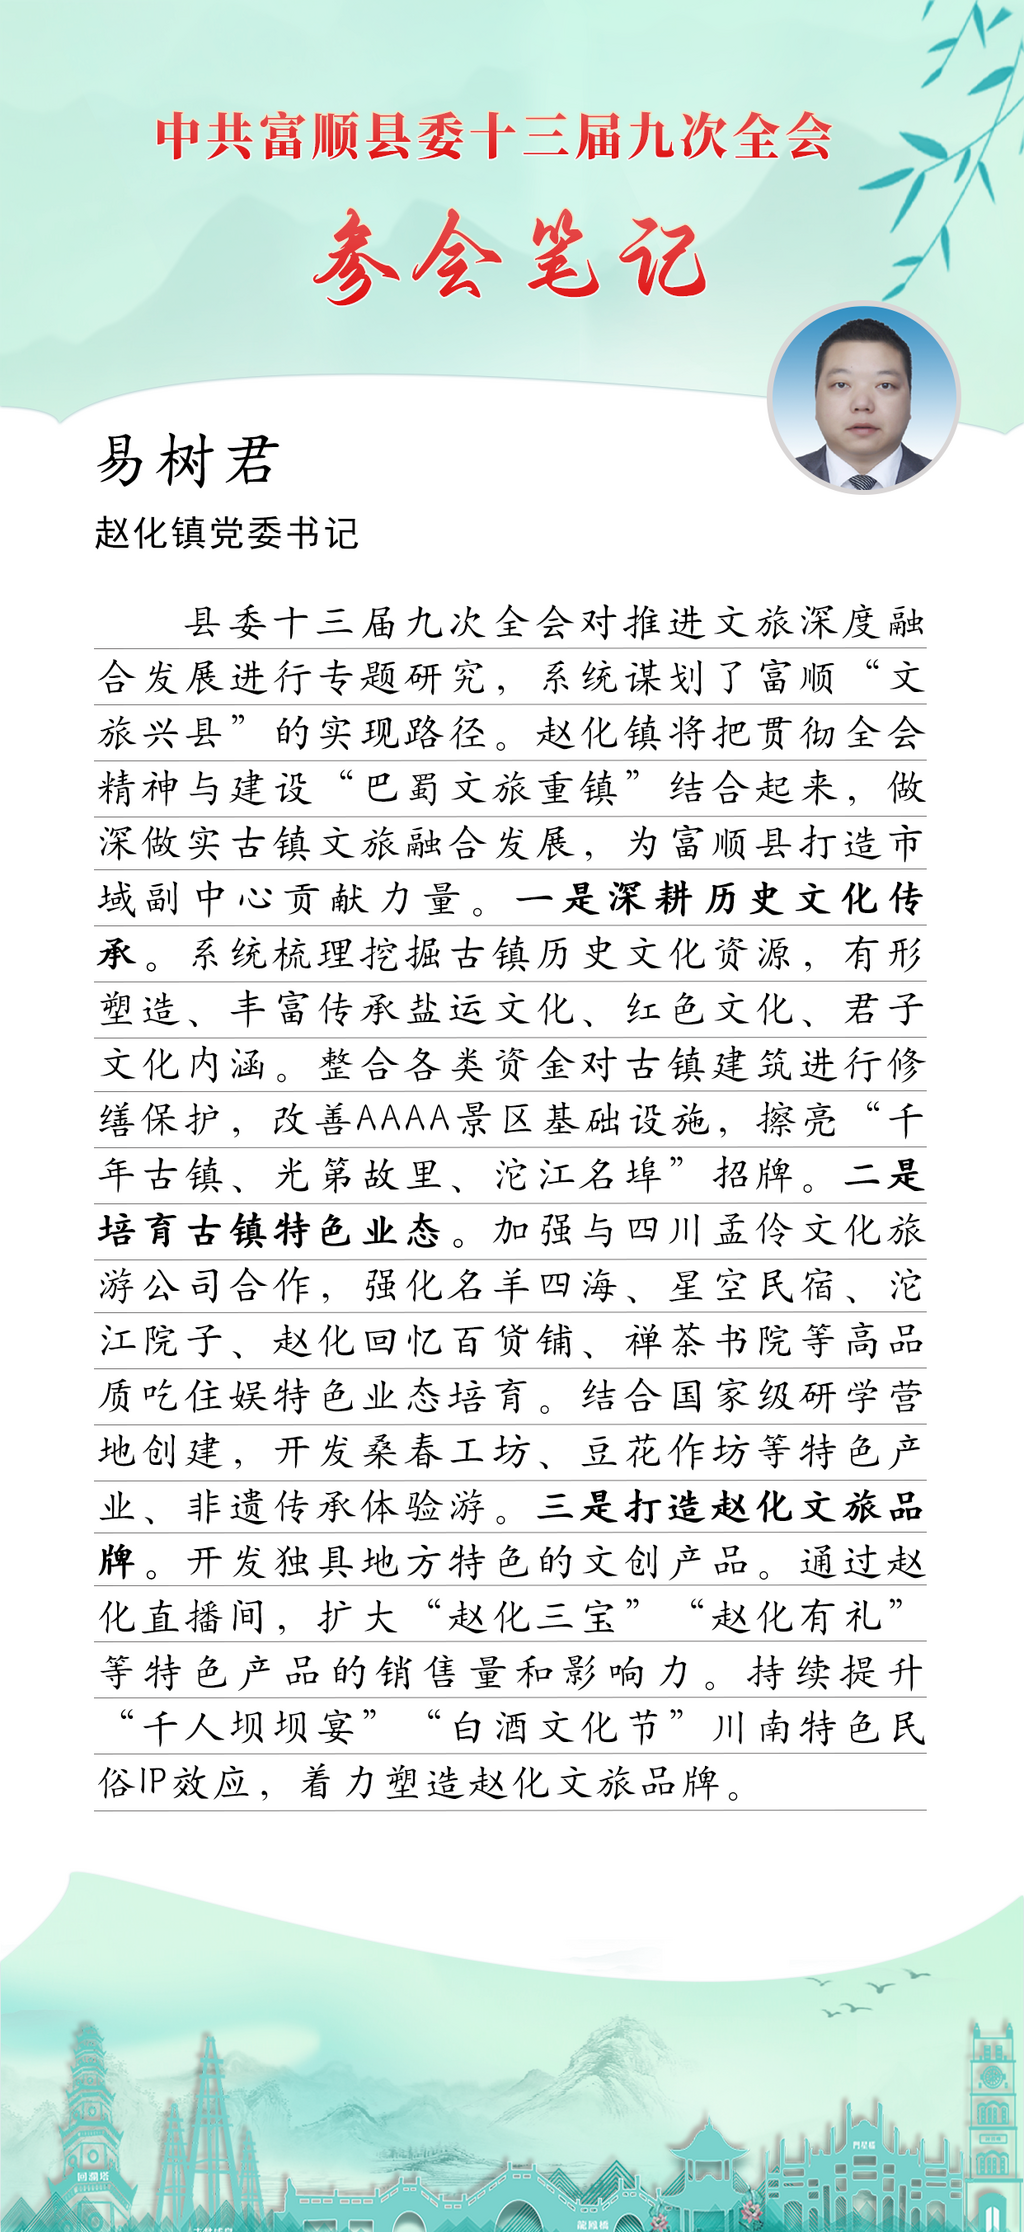 中共富顺县委十三届九次全会
参会笔记
易树君
赵化镇党委书记
县委十三届九次全会对推进文旅深度融
合发展进行专题研究，系统谋划了富顺“文
旅兴县”的实现路径。赵化镇将把贯彻全会
精神与建设“巴蜀文旅重镇”结合起来，做
深做实古镇文旅融合发展，为富顺县打造市
域副中心贡献力量。一是深耕历史文化传
承。系统梳理挖掘古镇历史文化资源，有形
塑造、丰富传承盐运文化、红色文化、君子
文化内涵。整合各类资金对古镇建筑进行修
缮保护，改善AAAA景区基础设施，擦亮“千
年古镇、光第故里、沱江名埠”招牌。二是
培育古镇特色业态。加强与四川孟伶文化旅
游公司合作，强化名羊四海、星空民宿、沱
江院子、赵化回忆百货铺、禅茶书院等高品
质吃住娱特色业态培育。结合国家级研学营
地创建，开发桑春工坊、豆花作坊等特色产
业、非遗传承体验游。三是打造赵化文旅品
牌。开发独具地方特色的文创产品。通过赵
化直播间，扩大“赵化三宝”“赵化有礼”
等特色产品的销售量和影响力。持续提升
“千人坝坝宴”“白酒文化节”川南特色民
俗IP效应，着力塑造赵化文旅品牌。
回瀾塔
龍鳳橋